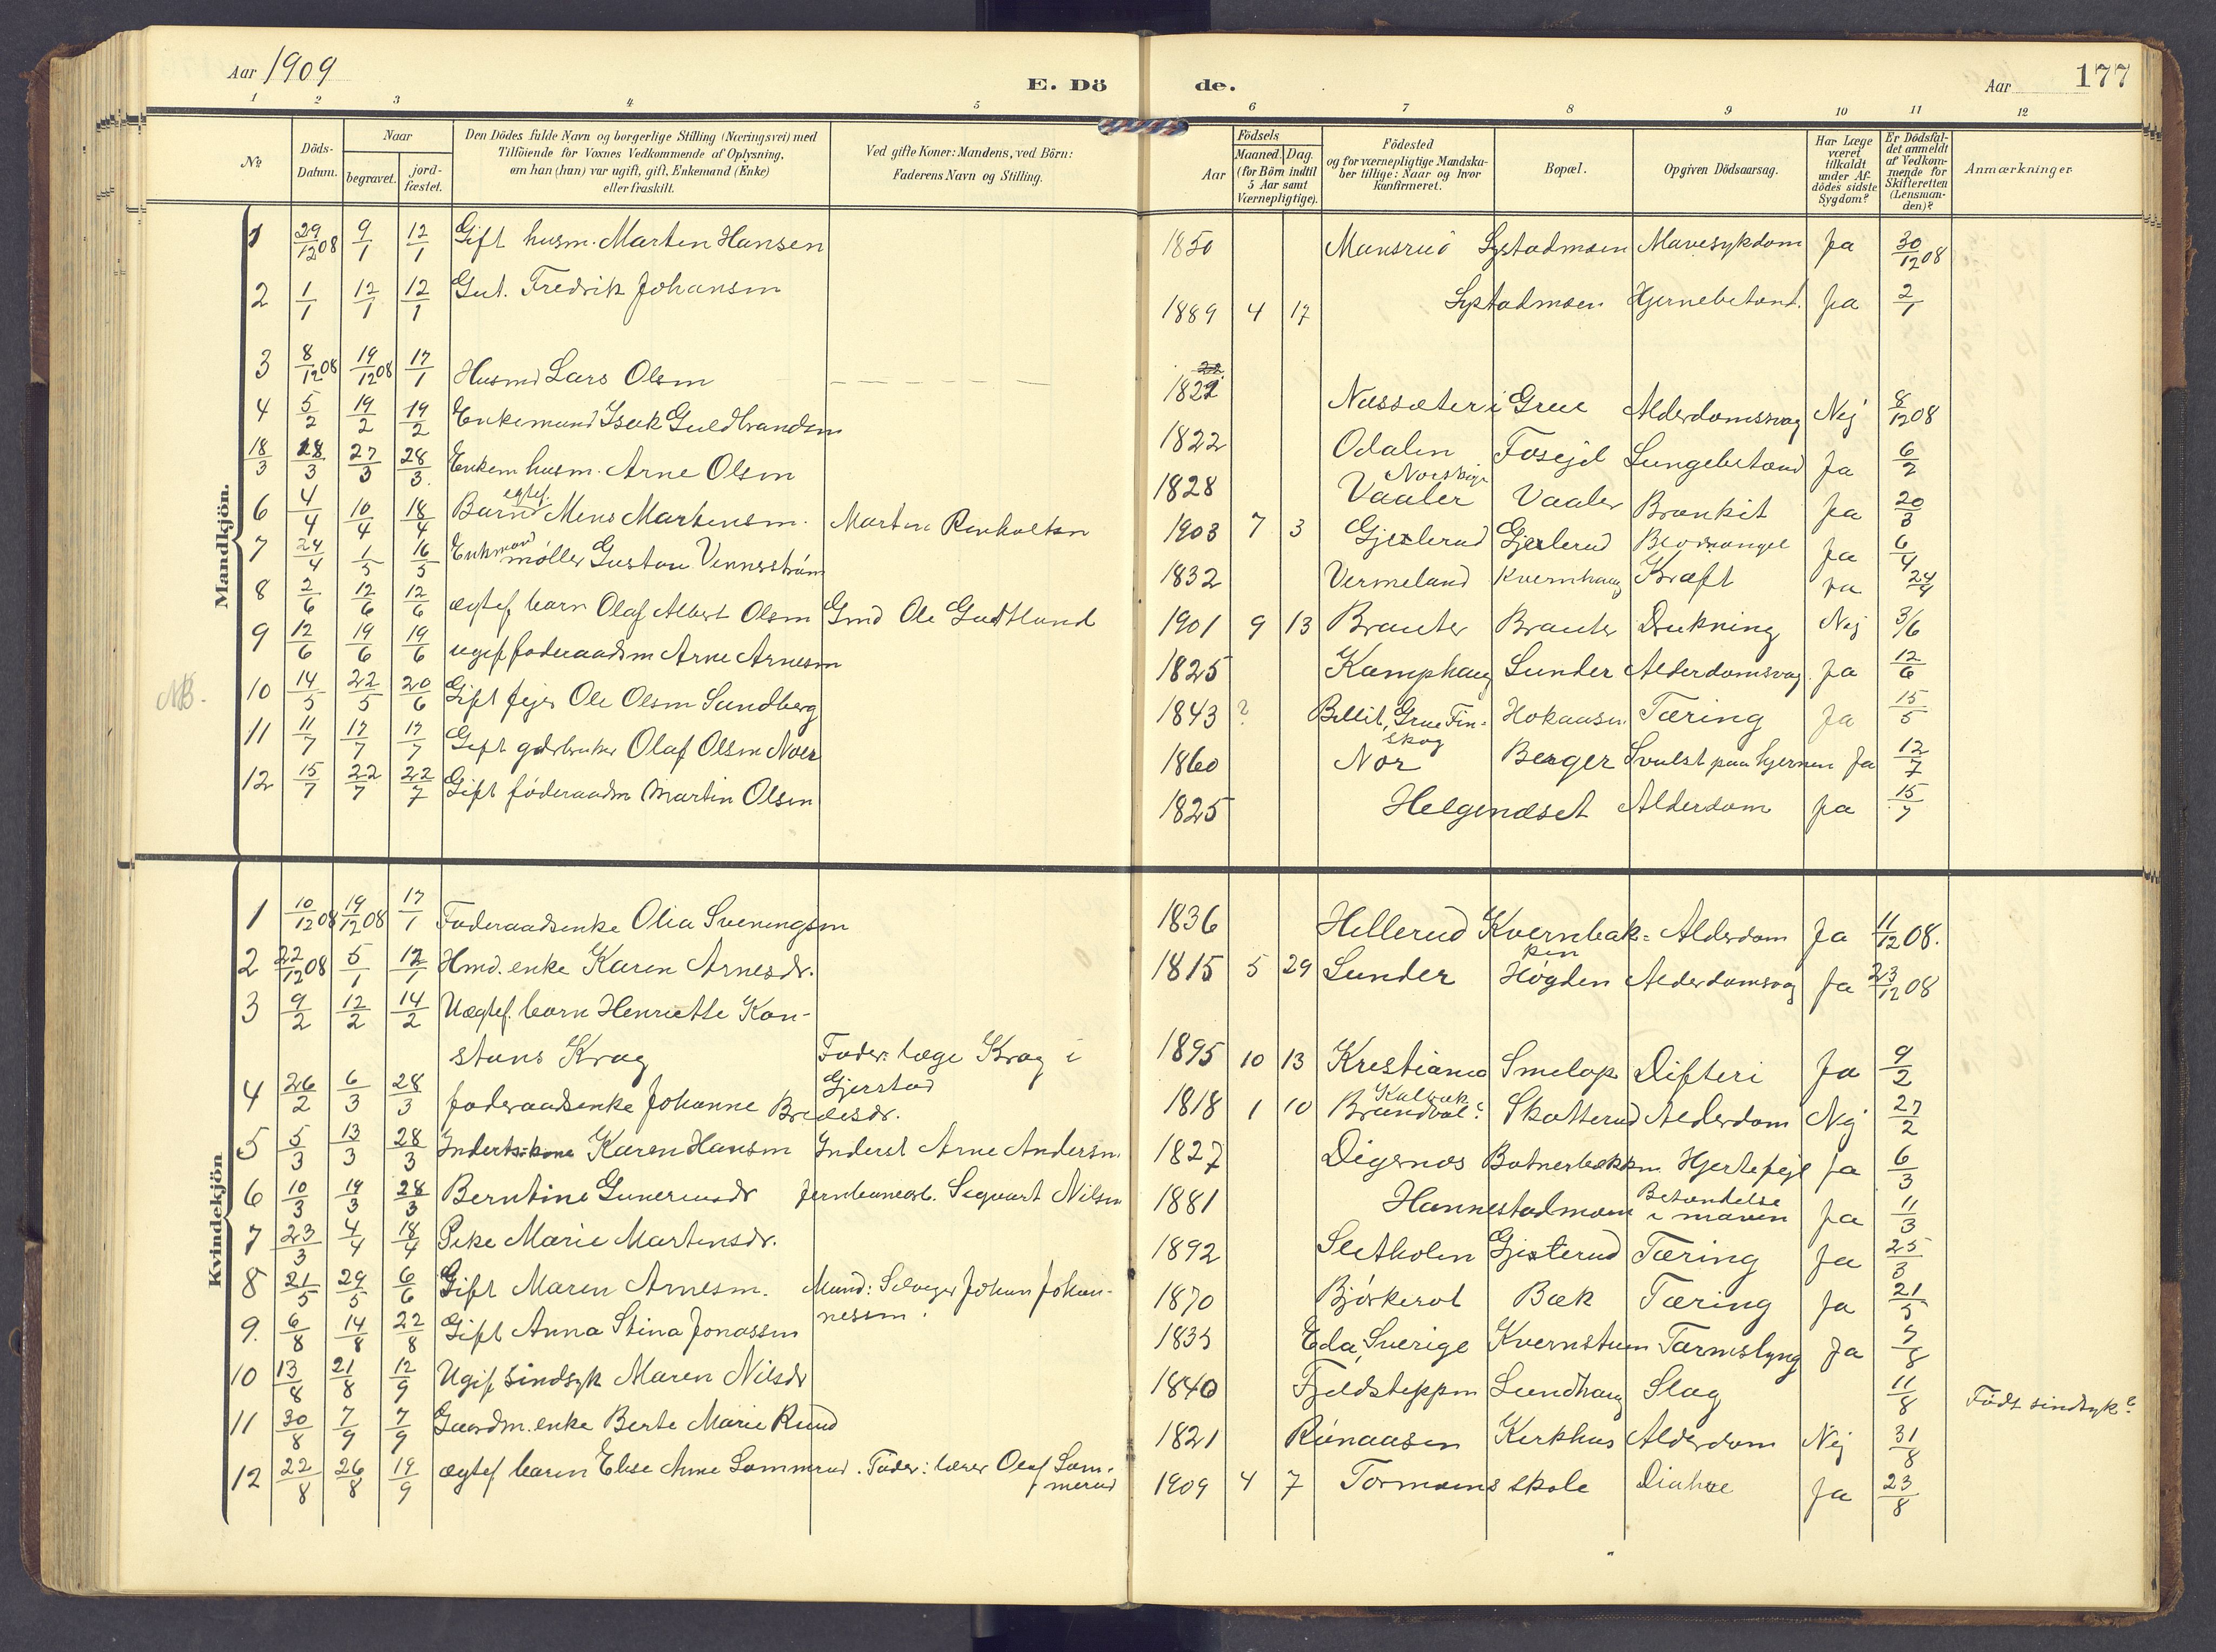 Aar 1909
E. Dö de.
Aar 177
1 2 3 4 5 6 7 8 9 10 11 12
No
Döds-Datum.
Naar
begravet.
jord-fæstet.
Den Dödes fulde Navn og borgerlige Stilling (Næringsvei) med
Tilföiende for Voxnes Vedkommende af Oplysning,
om han (hun) var ugift, gift, Enkemand (Enke)
eller fraskilt.
Ved gifte Koner: Mandens, ved Börn:
Faderens Navn og Stilling.
Födsels
Aar
Maaned. Dag.
(for Börn indtil
5 Aar samt
Værnepligtige).
Födested
og for værnepligtige Mandska-
ber tillige: Naar og hvor
konfirmeret.
Bopæl.
Opgiven Dödsaarsag.
Har Læge
været
tilkaldt
under Af-
dödes sidste
Sygdom?
Er Dödsfal-
det anmeldt
af Vedkom-
mende for
Skifteretten
(Lensman-
den)?
Anmærkninger
Mandkjön.
1 29/12 08 9/1 12/1 Gift husm. Marten Hansen 1850 Mansrud Systadmoen Mavesykdom Ja 30/12 08
2 1/1 12/1 12/1 Gut. Fredrik Johansen 1889 4 17 Systadmoen Hjernebetænd. Ja 2/1
3 8/12 08 19/12 08 17/1 Husmd Lars Olsen 1822 Næssæter i Grue Alderdomssvag Nej 8/12 08
4 5/2 19/2 19/2 Enkemand Isak Guldbrandsen 1822 Odalen Fosejd Lungebetænd Ja 6/2
18/3 18/3 27/3 28/3. Enkem husm. Arne Olsen 1828 Vaaler Vaaler Bronkit Ja 20/3
6 4/4 10/4 18/4 Barn egtef. Mens Martensen. Marten Renholtsen 1903 7 3 Gjesterud Gjesterud Ja 6/4
7 24/4 1/5 16/5 Enkmand møller Gustav Vennerstrøm 1832 Vermeland Kvernhaug Kræft Ja 24/4
8 2/6 12/6 12/6 ægtef barn Olaf Albert Olsen Gmd Ole Gudtlund 1901 9 13 Brauter Brauter Drukning Nej 3/6
9 12/6 19/6 19/6 ugif foderaadsm Arne Arnesen 1825 Kamphaug Sunder Alderdomsvag. Ja 12/6
NB. 10 14/5 22/5 20/6 Gift fejer Ole Olsen Sundberg 1843 ? Grue Finskog Hokaasen Tæring Ja 15/5
11 11/7 17/7 17/7 Gift gdrbruker Olaf Olsen Noer 1860 Nor Berger Svulst paa hjernen Ja 12/7
12 15/7 22/7 22/7 Gift føderaadm Martin Olsen 1825 Helgenæset Alderdom Ja 15/7
Kvindekjön
1 10/12 08 19/12 08 17/1 Foderaadsenke Olia Sveningsen 1836 Hellerud Kvernbak=ken Alderdom Ja 11/12 08.
2 22/12 08 5/1 12/1 Hmd. enke Karen Arnesdr. 1815 5 29 Sunder Høgden Alderdomsvag Ja 23/12 08
3 9/2 12/2 14/2 Uægtef. barn Henriette Kon-
stans Krag Fader: læge Krag i Gjerstad 1895 10 13 Krestiania Smelop Difteri Ja 9/2
4 26/2 6/3 28/3 foderaadsenke Johanne Bredesdr. 1818 1 10 Brandval? Skotterud Alderdom Nej 27/2
5 5/3 13/3 28/3 Inderts: kone Karen Hansen Inderst Arne Andersen. 1827 Digernes Botnerbækken Hjertefejl Ja 6/3
6 10/3 19/3 28/3 Berntine Gunerusdr Jernbanearb. Segvart Nilsen 1881 Hannestadmoen Betændelse i maven Ja 11/3
7 23/3 4/4 18/4 Pike Marie Martensdr. 1892 Sletholen Gjesterud Tæring Ja 25/3
8 21/5 29/5 6/6 Gift Maren Arnesen. Mand: Selveger Johan Johan-
nessen. 1870 Bjørkerot Bæk Tæring Ja 21/5
9. 6/8 14/8 22/8 Gift Anna Stina Jonassen 1835 Eda, Sverige Kvernstuen Tarmslyng Ja 7/8
10 13/8 21/8 12/9 Ugif. sindsyk Maren Nilsdr 1840 Fjeldsteppen Lundhaug Slag 11/8 Født sindsyk?
11 30/8 7/9 7/9 Gaardm. enke Berte Marie Ruud 1821 Rünaasen Kirkhus Alderdom Nej 31/8
12 22/8 26/8 19/9 ægtef barn Else Anne Sommerud. Fader: lærer Olaf Som-
merud 1909 4 7 Tormoens skole Diahre Ja 23/8